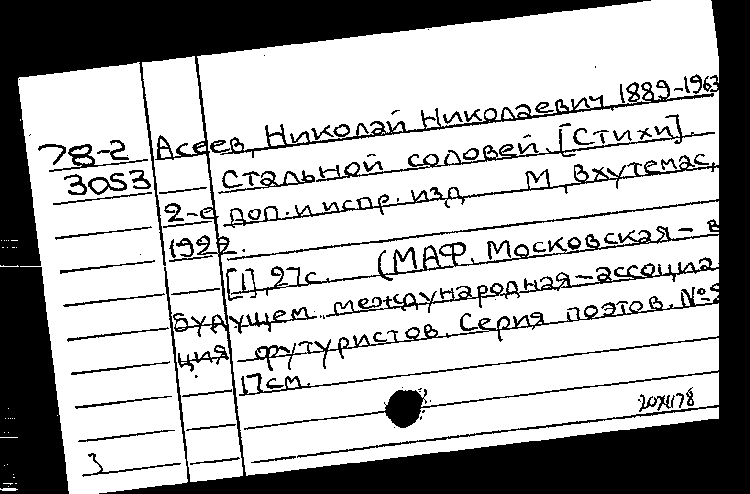 78-2 Асеев, Николай Николаевич, 1889-1963
3053 Стальной соловей. [Стихи].
2-е доп. и испр. изд. М, Вхутемас,
1922.
[1], 27с. (МАФ. Московская - в
будущем международная - ассоциа
ция футуристов. Серия поэтов. №
17см.
3